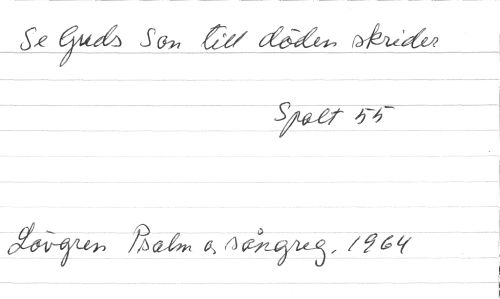 Se Guds Son till döden skrider
Spalt 55
Lövgren Psalm o, sångreg. 1964